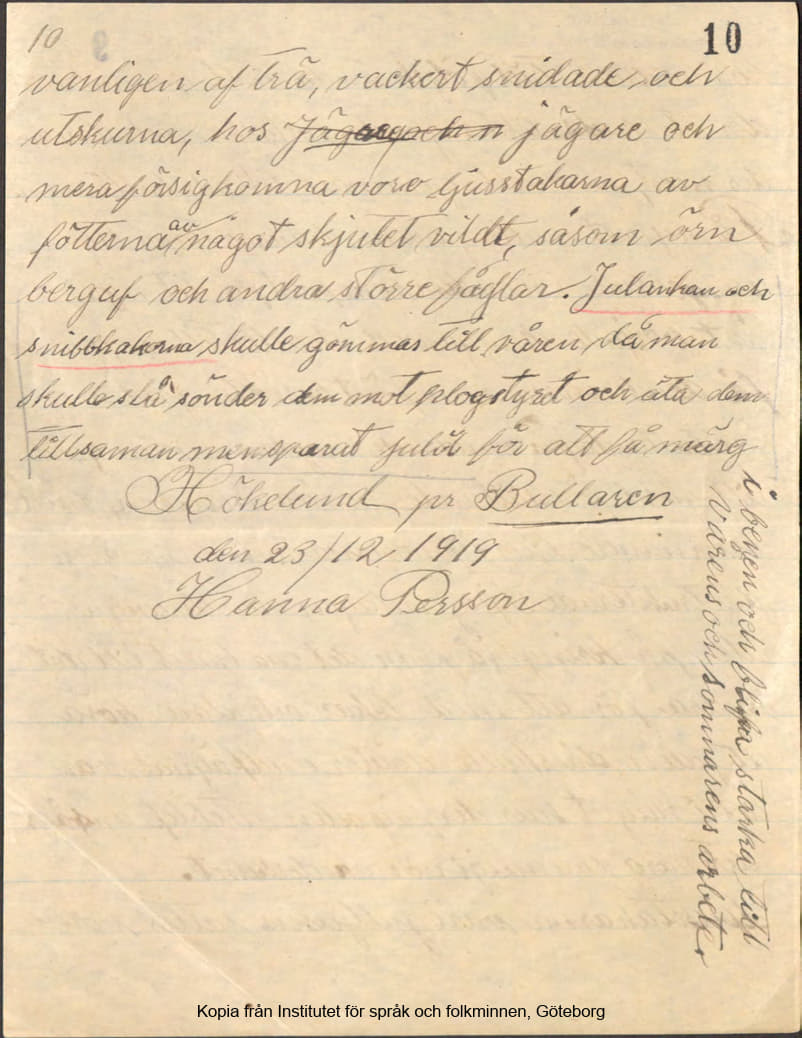 10
10
vanligen af trä, vackert snidade, och
utskurna, hos jägare och
mera försigkomna voro ljusstakarna av
fötterna av något skjutet vildt, såsom örn
berguf och andra större fåglar. Julankan och
snibbkakorna skulle gömmas till våren då man
skulle slå sönder dem mot plogstyret och äta dem
tillsaman men sparat julöl för att få märg
i benen och blifva starka till
vårens och sommarens arbeten
Hökelund pr Bullaren
den 23/12 1919
Hanna Persson
Kopia från Institutet för språk och folkminnen, Göteborg